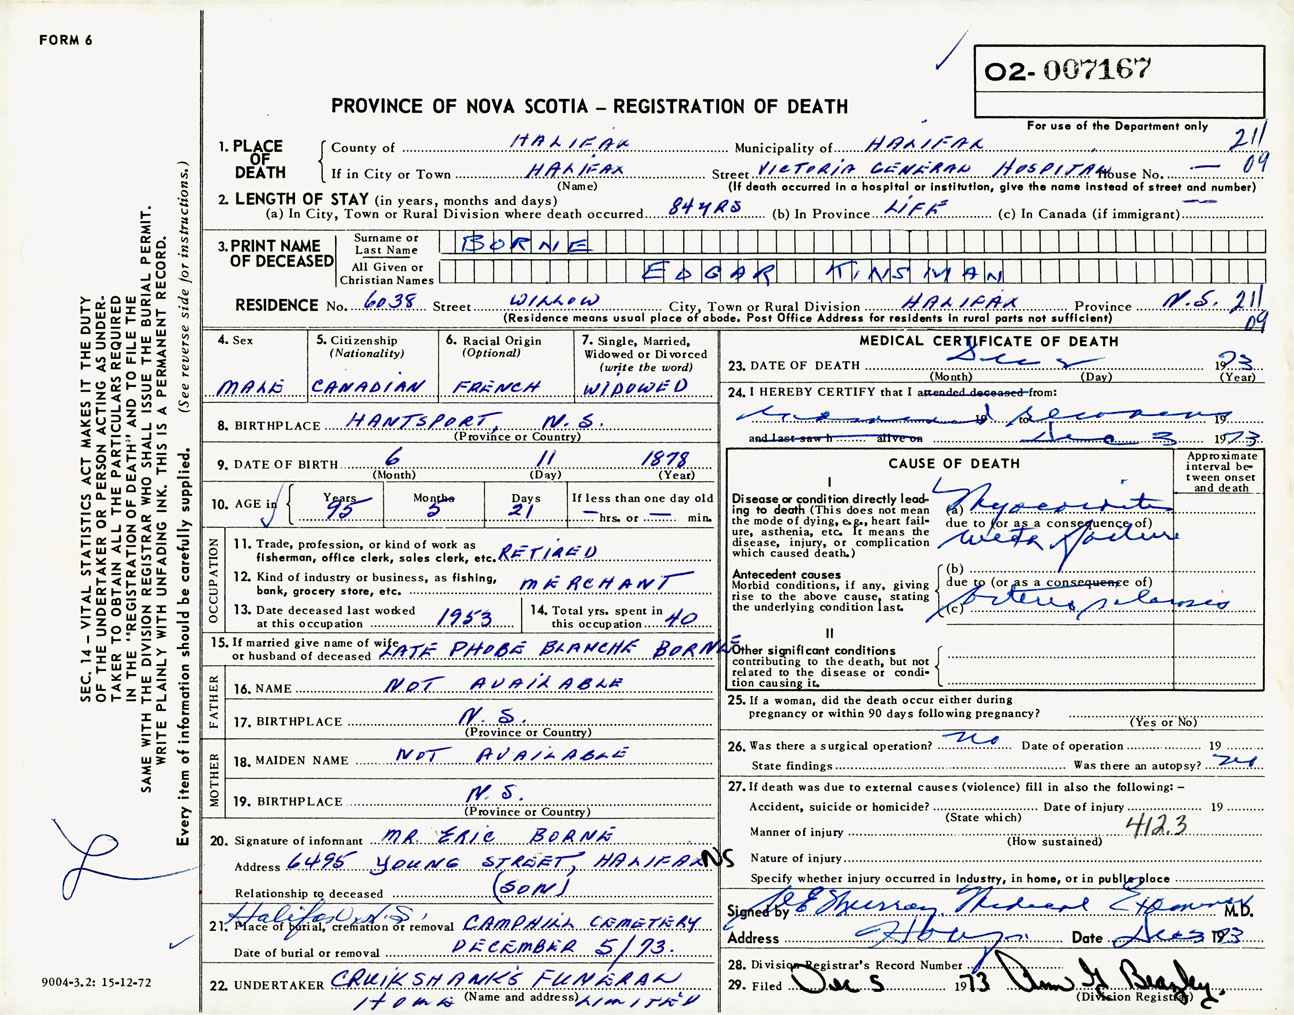 FORM 6
02-007167
PROVINCE OF NOVA SCOTIA – REGISTRATION OF DEATH
For use of the Department only
211
09
1. PLACE OF DEATH
County of HALIFAX Municipality of HALIFAX
If in City or Town HALIFAX Street VICTORIA GENERAL HOSPITAL House No. —
(Name) (If death occurred in a hospital or institution, give the name instead of street and number)
2. LENGTH OF STAY (in years, months and days)
(a) In City, Town or Rural Division where death occurred 84 YRS (b) In Province LIFE (c) In Canada (if immigrant) —
3. PRINT NAME OF DECEASED
Surname or Last Name BORNE
All Given or Christian Names EDGAR KINSMAN
RESIDENCE No. 6038 Street WILLOW City, Town or Rural Division HALIFAX Province N.S. 211
09
(Residence means usual place of abode. Post Office Address for residents in rural parts not sufficient)
4. Sex
MALE
5. Citizenship (Nationality)
CANADIAN
6. Racial Origin (Optional)
FRENCH
7. Single, Married, Widowed or Divorced (write the word)
WIDOWED
8. BIRTHPLACE HANTSPORT, N.S.
(Province or Country)
9. DATE OF BIRTH 6 11 1878
(Month) (Day) (Year)
10. AGE in Years Months Days If less than one day old
95 5 21 — hrs. or — min.
OCCUPATION
11. Trade, profession, or kind of work as
fisherman, office clerk, sales clerk, etc. RETIRED
12. Kind of industry or business, as fishing,
bank, grocery store, etc. MERCHANT
13. Date deceased last worked
at this occupation 1953
14. Total yrs. spent in
this occupation 40
15. If married give name of wife
or husband of deceased LATE PHOBE BLANCHE BORNE
FATHER
16. NAME NOT AVAILABLE
17. BIRTHPLACE N.S.
(Province or Country)
MOTHER
18. MAIDEN NAME NOT AVAILABLE
19. BIRTHPLACE N.S.
(Province or Country)
20. Signature of informant MR. ERIC BORNE
Address 6495 YOUNG STREET, HALIFAX NS
Relationship to deceased (SON)
Halifax, N.S.
21. Place of burial, cremation or removal CAMPHILL CEMETERY
Date of burial or removal DECEMBER 5/73.
22. UNDERTAKER CRUIKSHANK'S FUNERAL
HOME (Name and address) LIMITED
MEDICAL CERTIFICATE OF DEATH
23. DATE OF DEATH Dec 2 1973
(Month) (Day) (Year)
24. I HEREBY CERTIFY that I attended deceased from:
19 to 19
and last saw h alive on Dec 3 1973
CAUSE OF DEATH
Approximate interval between onset and death
I
Disease or condition directly lead-
ing to death (This does not mean
the mode of dying, e.g., heart fail-
ure, asthenia, etc. It means the
disease, injury, or complication
which caused death.)
(a) Myocarditis
due to (or as a consequence of)
with failure
Antecedent causes
Morbid conditions, if any, giving
rise to the above cause, stating
the underlying condition last.
(b)
due to (or as a consequence of)
(c) Arterio sclerosis
II
Other significant conditions
contributing to the death, but not
related to the disease or condi-
tion causing it.
25. If a woman, did the death occur either during
pregnancy or within 90 days following pregnancy?
(Yes or No)
26. Was there a surgical operation? no Date of operation 19
State findings Was there an autopsy? no
27. If death was due to external causes (violence) fill in also the following: –
Accident, suicide or homicide? Date of injury 19
(State which)
412.3
Manner of injury
(How sustained)
Nature of injury
Specify whether injury occurred in industry, in home, or in public place
Signed by Murray Medical Examiner M.D.
Address Date Dec 3 1973
28. Division Registrar's Record Number
29. Filed Dec 5 1973 Ann G Beazley.
(Division Registrar)
SEC. 14 – VITAL STATISTICS ACT MAKES IT THE DUTY
OF THE UNDERTAKER OR PERSON ACTING AS UNDER-
TAKER TO OBTAIN ALL THE PARTICULARS REQUIRED
IN THE "REGISTRATION OF DEATH" AND TO FILE THE
SAME WITH THE DIVISION REGISTRAR WHO SHALL ISSUE THE BURIAL PERMIT.
WRITE PLAINLY WITH UNFADING INK. THIS IS A PERMANENT RECORD.
Every item of information should be carefully supplied. (See reverse side for instructions.)
9004-3.2: 15-12-72